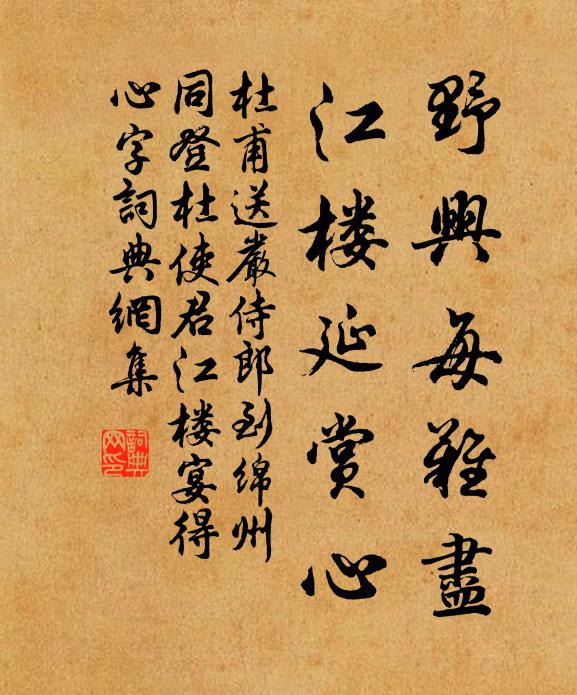 野興每難盡
江楼延賞心
杜甫送嚴侍郎到綿州
同登杜使君江楼宴得
心字詞典網集
詞典网印